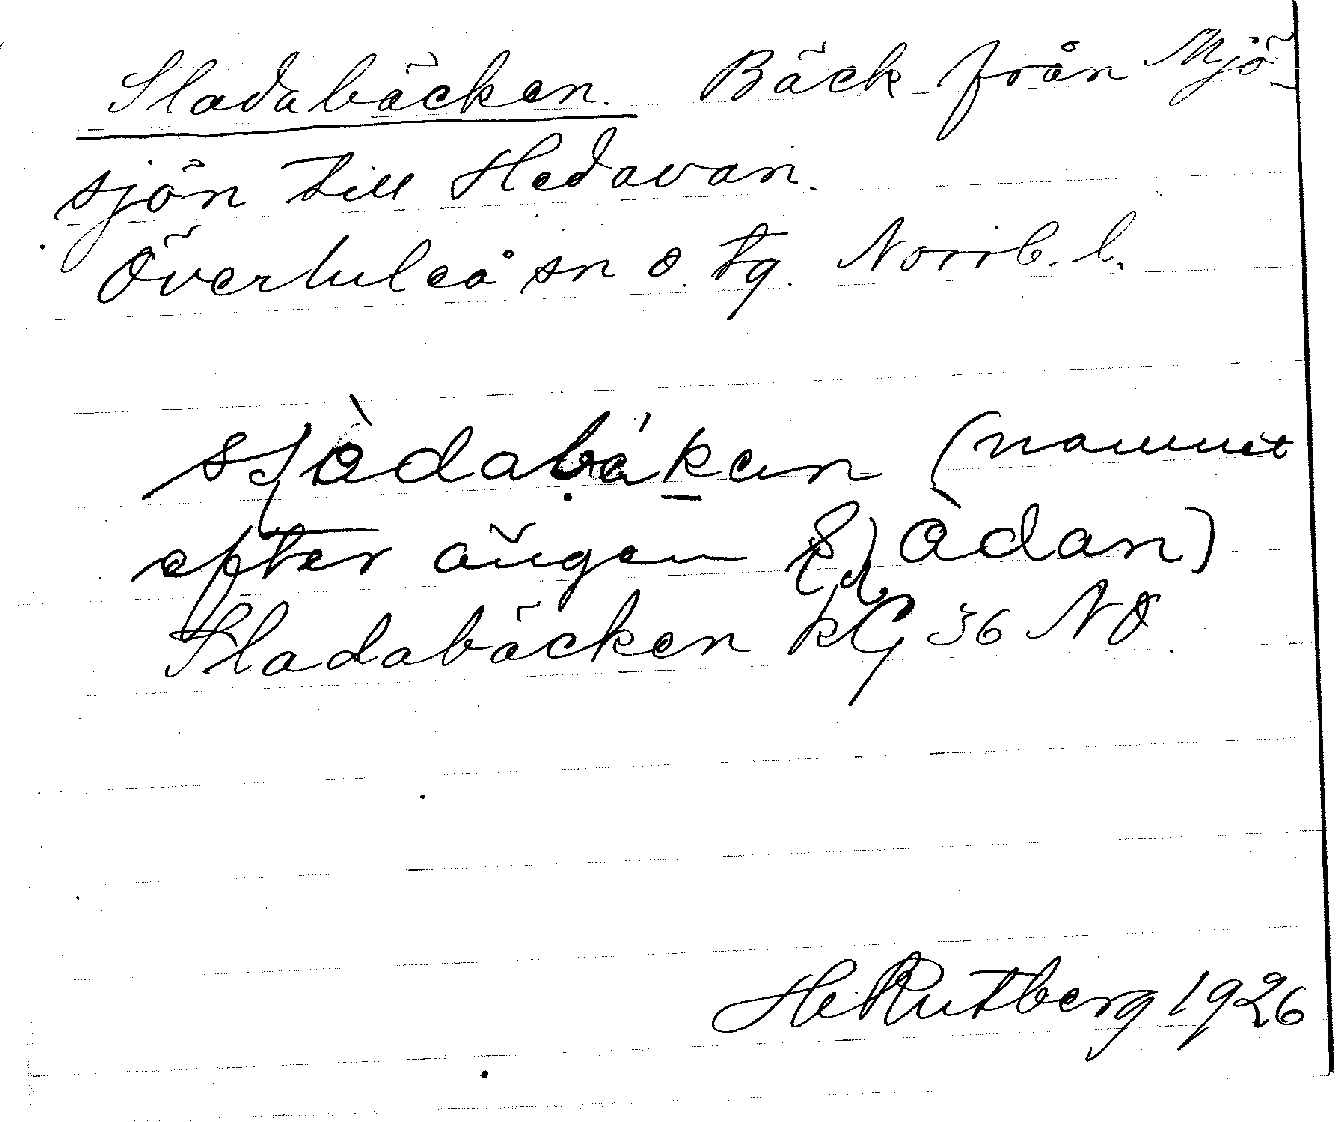 Sladabäcken. Bäck från Mjö-
sjön till Hedavan.
Överluleå sn o. tg. Norrb. l.
sjòdabäken (namnet
efter ängen Sjòdan)
Sladabäcken kG 36 NO
H. Rutberg 1926